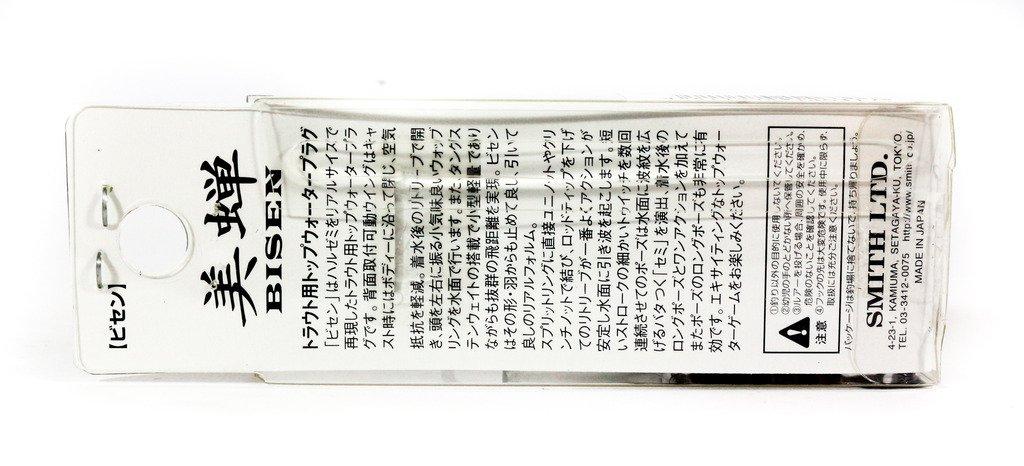 【ビセン】
美蝉
BISEN
トラウト用トップウォータープラグ
「ビセン」はハルゼミをリアルサイズで
再現したトラウト用トップウォータープラ
グです。背面取付可動ウイングはキャ
スト時にはボディーに沿って閉じ、空気
抵抗を軽減。着水後のリトリーブで開
き、頭を左右に振る小気味良いウォッブ
リングを水面で行います。また、タングス
テンウェイトの搭載で小型軽量であり
ながらも抜群の飛距離を実現。ビセン
はその形・羽からも止めて良し、引いて
良しのリアルフォルム。
スプリットリングに直接ユニノットやクリ
ンチノットで結び、ロッドティップを下げ
てのリトリーブが一番よくアクションが
安定し水面に引き波を起こします。短
いストロークの細かいトゥイッチを数回
連続させてのポーズは水面に波紋を広
げるバタつく「セミ」を演出、着水後の
ロングポーズとワンアクションを加えて
またポーズのロングポーズも非常に有
効です。エキサイティングなトップウォー
ターゲームをお楽しみください。
注意
①釣り以外の目的に使用しないでください。
②幼児の手のとどかない所へ保管してください。
③ルアーを投げる場合、周囲の安全を確かめ、
危険のないことを確認してください。
④フックの先は大変危険です。使用中に限らず、
取扱には充分ご注意ください。
パッケージは釣場に捨てないで、持ち帰りましょう。
SMITH LTD.
4-23-1, KAMIUMA, SETAGAYA-KU, TOKYO.
TEL. 03-3412-0075 http://www.smith.co.jp/
MADE IN JAPAN